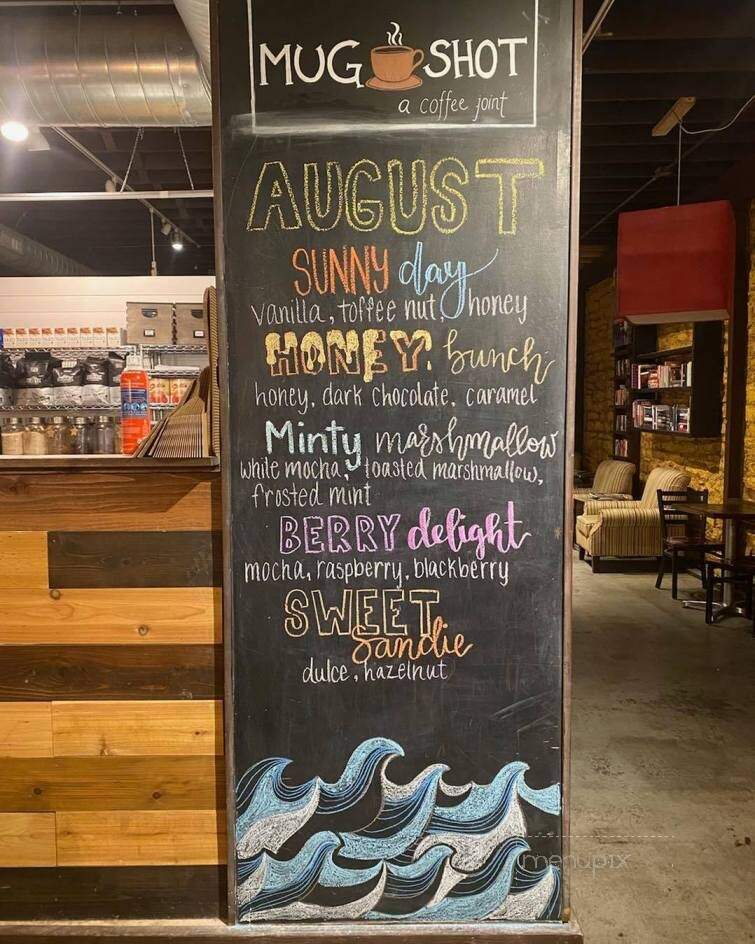 MUG SHOT
a coffee joint
AUGUST
SUNNY day
vanilla, toffee nut, honey
HONEY bunch
honey, dark chocolate, caramel
Minty marshmallow
white mocha, toasted marshmallow,
frosted mint
BERRY delight
mocha, raspberry, blackberry
SWEET
Sandie
dulce, hazelnut
menupix